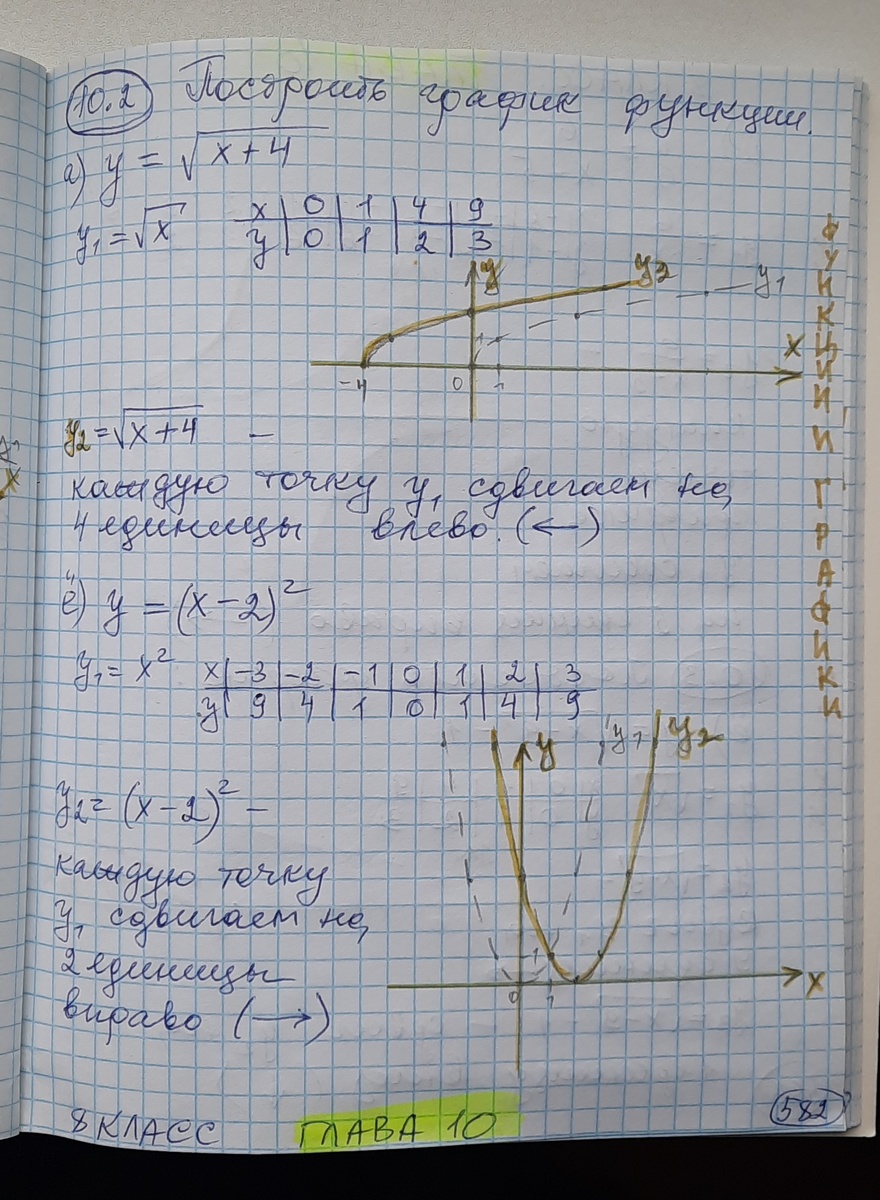 10.2 Построить график функции.
а) y = √(x+4)
y₁ = √x
x | 0 | 1 | 4 | 9
y | 0 | 1 | 2 | 3
y y₂ y₁
x
-4 0 1
y₂ = √(x+4) –
каждую точку y₁ сдвигаем на
4 единицы влево. (←)
ё) y = (x-2)²
y₁ = x²
x | -3 | -2 | -1 | 0 | 1 | 2 | 3
y | 9 | 4 | 1 | 0 | 1 | 4 | 9
y y₁ y₂
y₂ = (x-2)² –
каждую точку
y₁ сдвигаем на
2 единицы
вправо (→)
1
0 1 x
ФУНКЦИИ И ГРАФИКИ
8 КЛАСС ГЛАВА 10 582